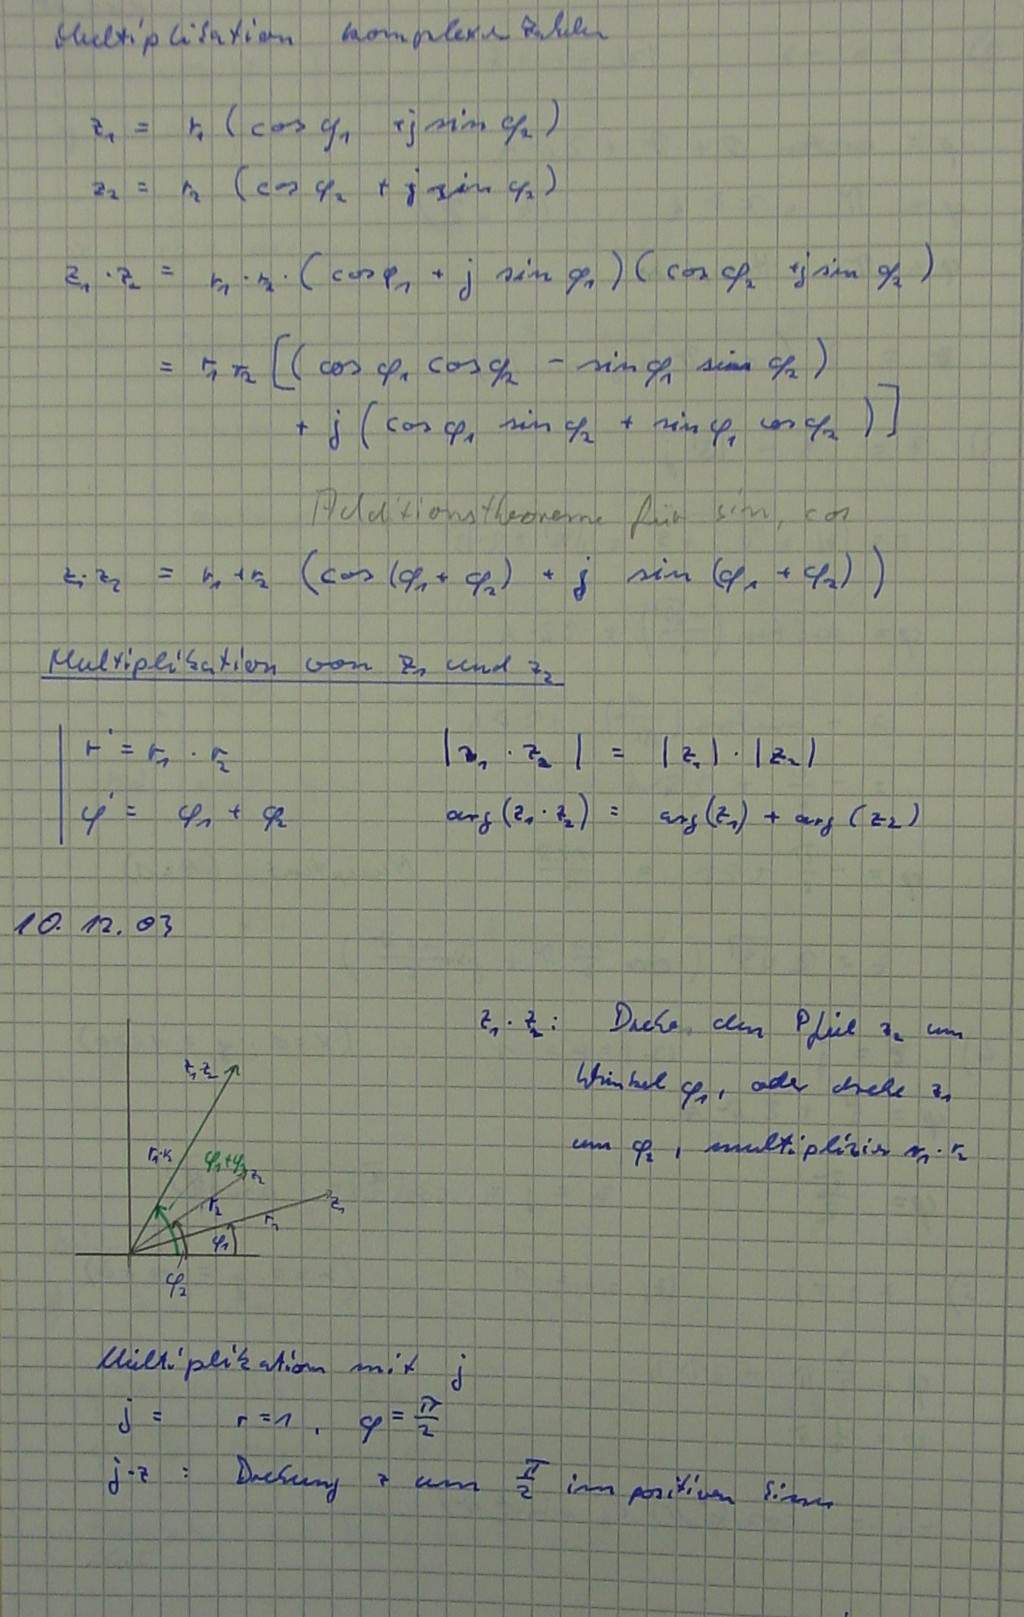 Multiplikation komplexer Zahlen
z₁ = r₁ (cos φ₁ + j sin φ₂)
z₂ = r₂ (cos φ₂ + j sin φ₂)
z₁ · z₂ = r₁ · r₂ · (cos φ₁ + j sin φ₁) (cos φ₂ + j sin φ₂)
= r₁ r₂ [(cos φ₁ cos φ₂ - sin φ₁ sin φ₂)
+ j (cos φ₁ sin φ₂ + sin φ₁ cos φ₂)]
Additionstheoreme für sin, cos
z₁ z₂ = r₁ + r₂ (cos (φ₁ + φ₂) + j sin (φ₁ + φ₂))
Multiplikation von z₁ und z₂
r' = r₁ · r₂ |z₁ · z₂| = |z₁| · |z₂|
φ' = φ₁ + φ₂ arg (z₁ · z₂) = arg (z₁) + arg (z₂)
10. 12. 03
z₁ · z₂ : Drehe den Pfeil z₂ um
Winkel φ₁, oder drehe z₁
um φ₂, multiplizier r₁ · r₂
z₁·z₂
r₁·r₂ φ₁+φ₂
z₂
r₂ z₁
r₁
φ₁
φ₂
Multiplikation mit j
j = r = 1, φ = π/2
j·z : Drehung z um π/2 im positiven Sinne